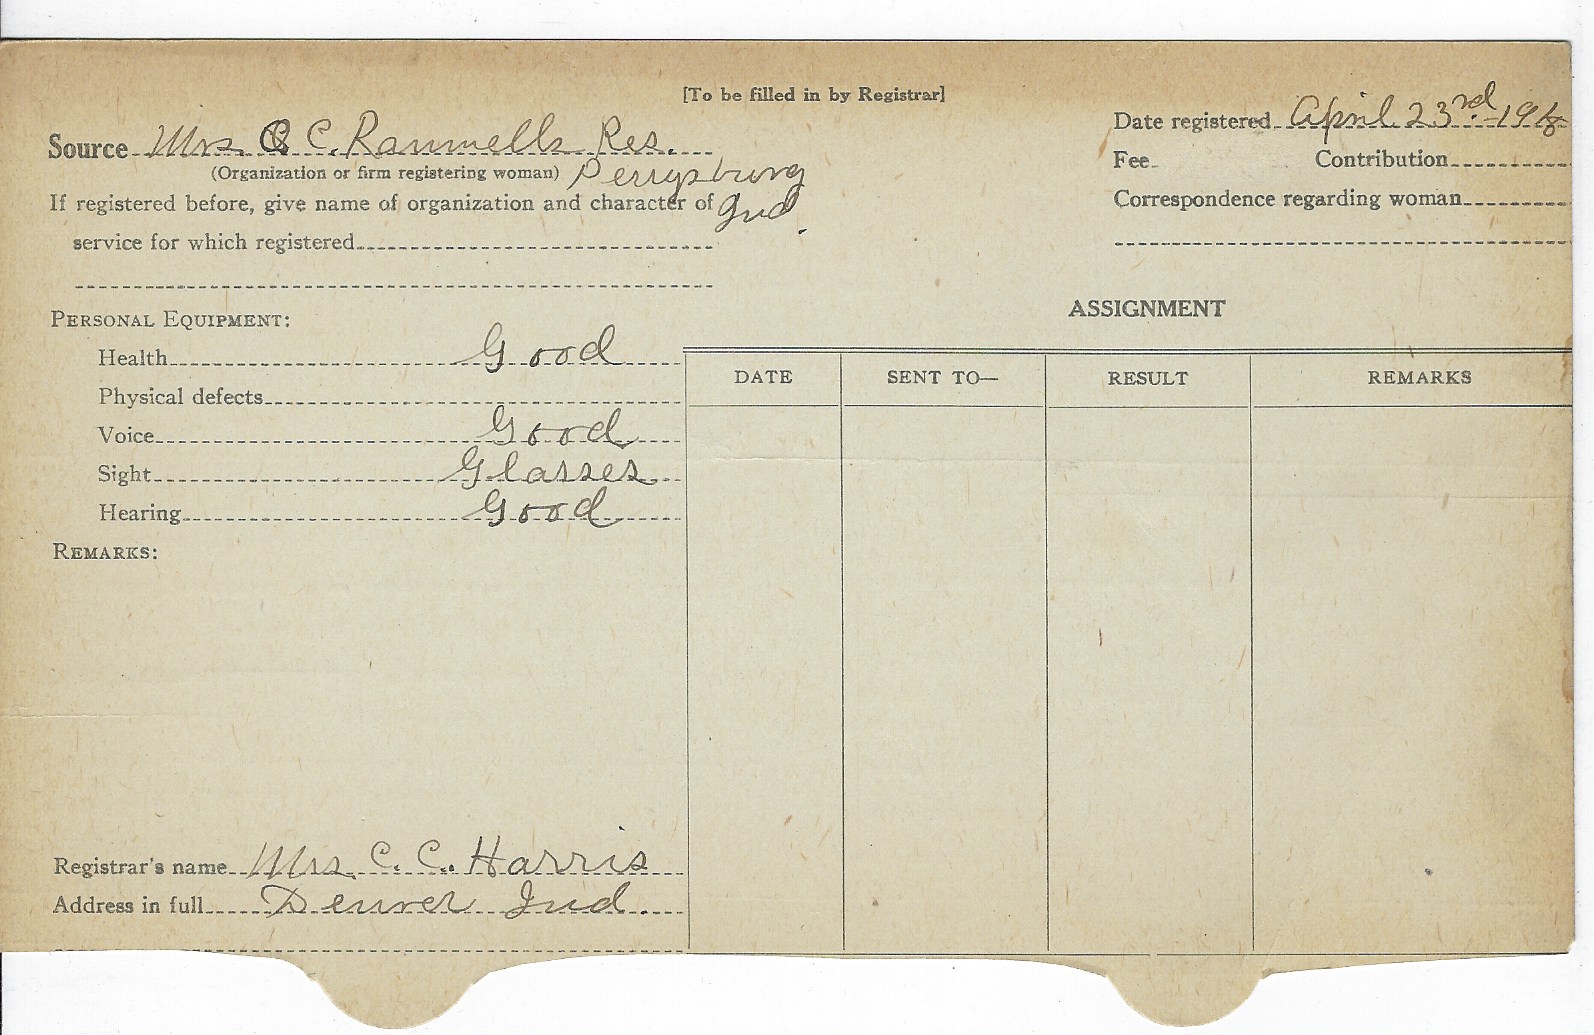 [To be filled in by Registrar]
Source Mrs C C. Rammells Res.
(Organization or firm registering woman) Perrysburg
If registered before, give name of organization and character of Ind.
service for which registered
Date registered April 23rd 1918
Fee Contribution
Correspondence regarding woman
PERSONAL EQUIPMENT:
Health Good
Physical defects
Voice Good
Sight Glasses
Hearing Good
REMARKS:
Registrar's name Mrs. C. C. Harris
Address in full Denver Ind.
ASSIGNMENT
DATE SENT TO— RESULT REMARKS